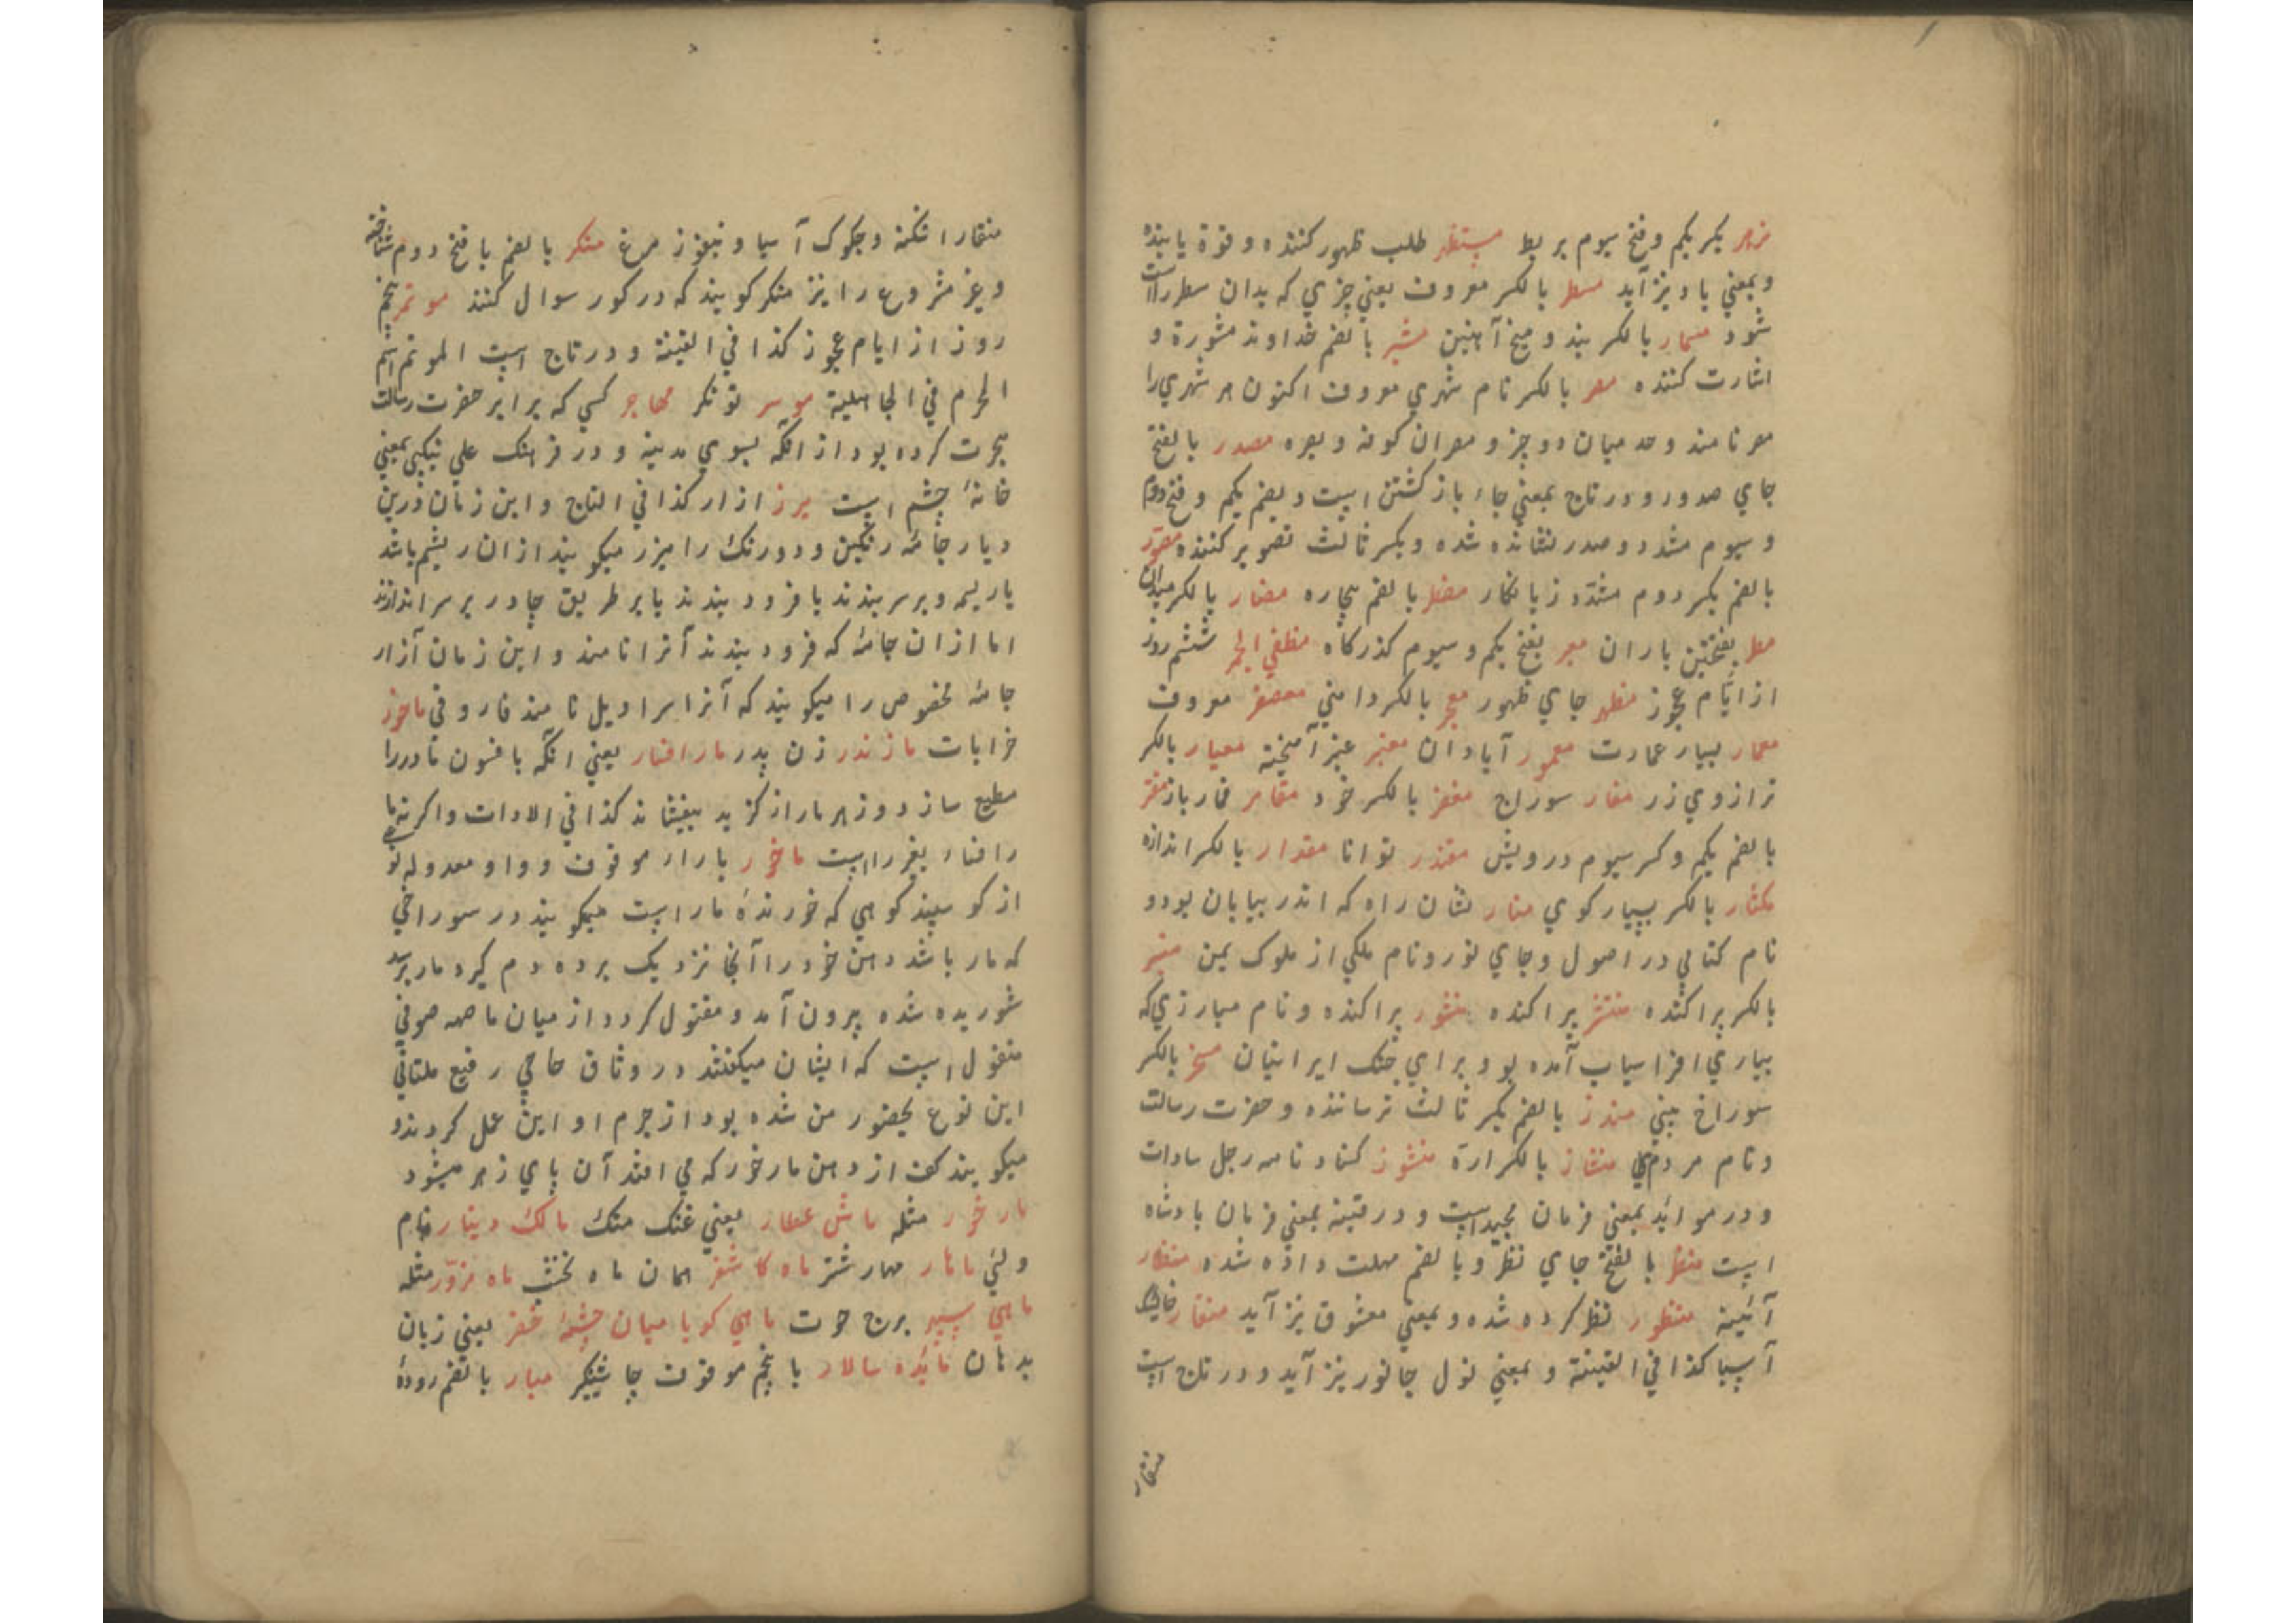 مزمر بکسر یکم و فتح سیوم بربط مستظهر طلب ظهور کننده و قوة یابنده
و بمعنی یاد نیز آید مسطر بالکسر معروف یعنی چیزی که بدان سطر راست
شود مسمار بالکسر بند و میخ آهنین مشیر بالضم خداوند مشورة و
اشارت کننده مصر بالکسر نام شهری معروف اکنون هر شهری را
مصر نامند و حد میان دو چیز و مصران کوفه و بصره مصدر بالفتح
جای صدور و در تاج بمعنی جاء باز کشتن است و بضم یکم و فتح دوم
و سیوم مشدد و صدر نشانده شده و بکسر ثالث تصویر کننده مصور
بالضم بکسر دوم مشدد زیانکار مضطر بالضم بیچاره مضمار بالکسر میدان
مطر بفتحتین باران معبر بفتح یکم و سیوم کذرکاه مطفی الجمر ششم روز
از ایام عجوز مظهر جای ظهور معجر بالکسر دامنی معصفر معروف
معمار بسیار عمارت معمور آبادان معنبر عنبر آمیخته معیار بالکسر
ترازوی زر مغار سوراخ مغفر بالکسر خود مقامر قمار باز مقتر
بالضم یکم و کسر سیوم درویش مقتدر توانا مقدار بالکسر اندازه
مکثار بالکسر بسیار کوی منار نشان راه که اندر بیابان بود و
نام کتابی در اصول و جای نور و نام ملکی از ملوک یمن
بالکسر پراکنده منتشر پراکنده منشور پراکنده و نام مبارزی که
بیاری افراسیاب آمده بود برای جنک ایرانیان منخر بالکسر
سوراخ بینی منذر بالضم بکسر ثالث ترساننده و حضرت رسالت
و نام مردمی منشار بالکسر ارة منشور کشاد نامه رجل سادات
و در موائد بمعنی فرمان مجید است و در قنیه بمعنی فرمان بادشاه
است منظر بالفتح جای نظر و بالضم مهلت داده شده منظار
آئینه منظور نظر کرده شده و بمعنی معشوق نیز آید منقار
آسیا کذا فی القنیة و بمعنی نول جانور نیز آید و در تاج است
منقار
منقار اشکنه و چکوک آسیا و نبغوز مرغ منکر بالضم با فتح دوم شناخته
و غیر مشروع را نیز منکر کویند که در کور سوال کنند موتمر پنجم
روز از ایام عجوز کذا فی القنیة و در تاج است الموتمر اسم
المحرم فی الجاهلیة موسر توانکر مهاجر کسی که برابر حضرت رسالت
هجرت کرده بود از مکه بسوی مدینه و در فرهنک علی نیکبی بمعنی
خانهٔ چشم است میزر ازار کذا فی التاج و این زمان درین
دیار جامهٔ رنکین و دو رنک را میزر میکویند ازان ریشم باشد
یا ریسمه و بر سر بندند یا فرود بندند یا بر طریق چادر بر سر اندازند
اما ازان جامهٔ که فرود بندند آنرا نامند و این زمان آزار
جامهٔ مخصوص را میکویند که آنرا سراویل نامند فاروقی ماخور
خرابات مازندر زن پدر مار افسار یعنی انکه بافسون مار را
مطیع سازد و زهر مار از کزیده بیفشاند کذا فی الادات و اکر نه
را فسار بغیر را است مارخور بارار موقوف و واو معدوله نوعی
از کوسپند کوهی که خورندهٔ مار است میکویند در سوراخی
که مار باشد دهن خود را آنجا نزدیک برده دم کیرد مار بر سر
شوریده شده بیرون آمد و مقتول کردد از میان ماهمه صوفی
منقول است که ایشان میکفتند در وثاق حاجی رفیع ملتانی
این نوع بحضور من شده بود از جرم او این عمل کردند و
میکویند کف از دهن مارخور که می افتد آن پای زهر میشود
مارخور مثله ماش عطار یعنی غنک منک مالک دینار نام
ولی ماهار مهار شتر ماه کاشغر همان ماه نخشب ماه مزور مثله
ماهی سپهر برج حوت ماهی کویا میان چشمهٔ خضر یعنی زبان
بدهان مائده سالار با پنجم موقوف چاشنیکیر مبار بالضم رودهٔ